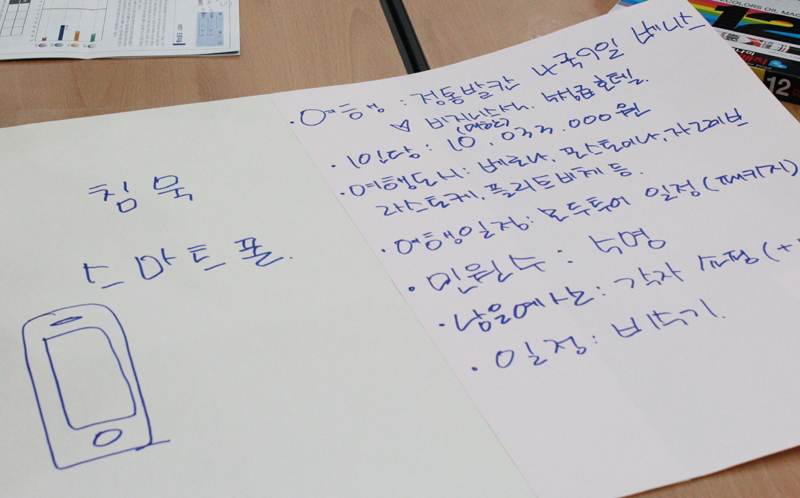 침묵
스마트폰.
·여행: 정통발칸 4국9일
비지니스석. 5성급호텔.
(대한)
·1인당: 10.033.000원
·여행도시: 베로나, 포스토이나, 자그레브
라스토케, 플리트비체 등.
·여행일정: 모두투어 일정(패키지)
·인원수: 4명
·남은예산: 각자 쇼핑(+
·일정: 비수기.
COLORS OIL
12
12